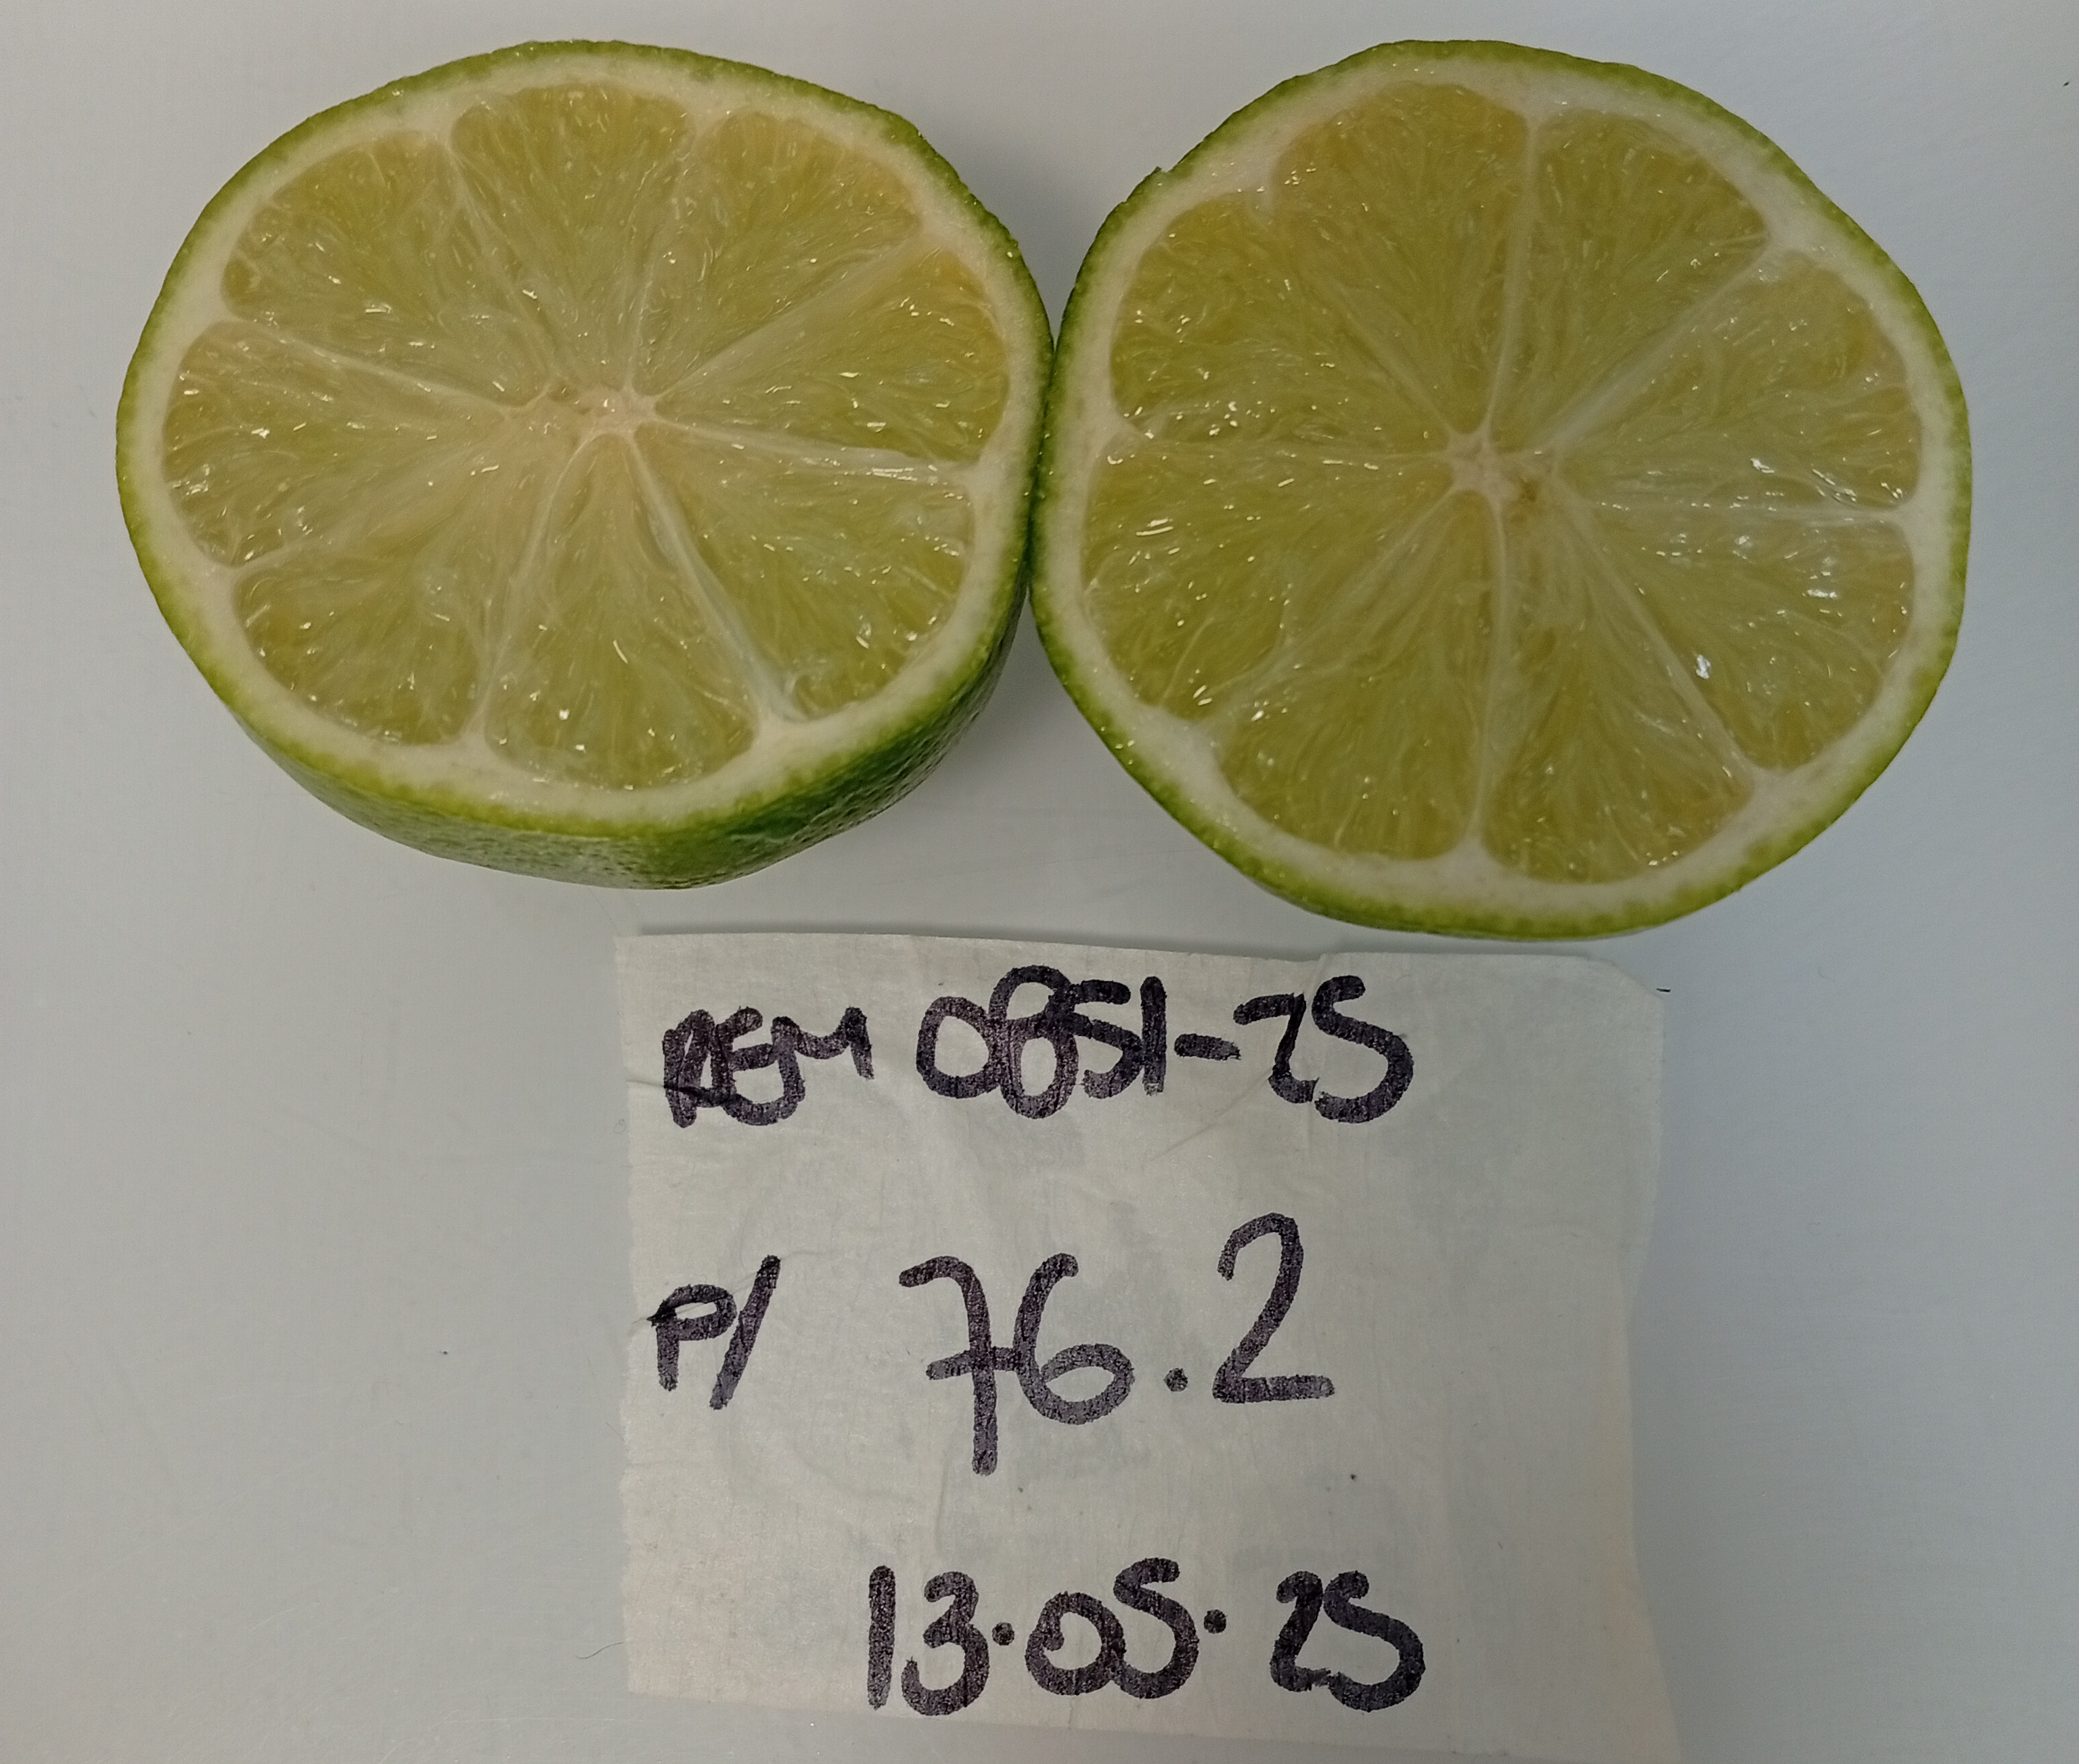 REM 0851-25
P/ 76.2
13.05.25